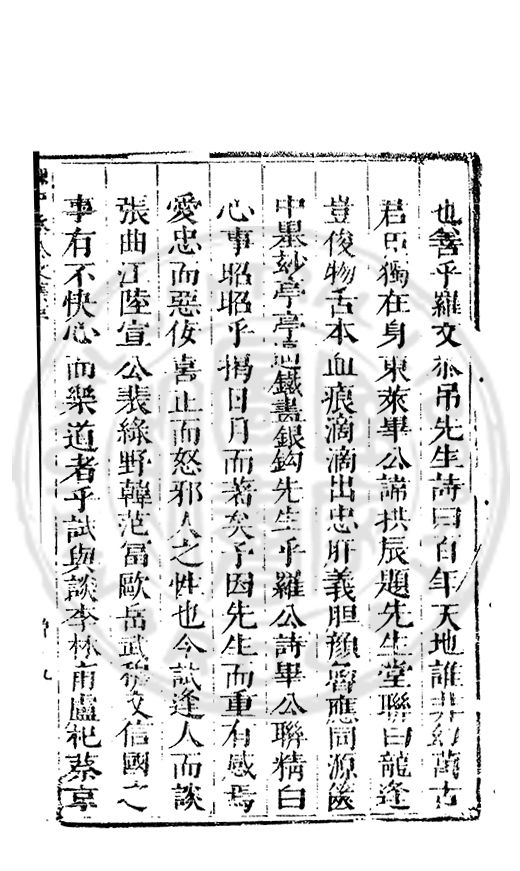 也善乎羅文 吊先生詩曰百年天地誰 萬古
君臣獨在身東萊畢公諱拱辰題先生堂聯曰龍逢
豈俊物舌本血痕滴滴出忠肝義胆顏 應同源篋
中墨妙亭亭 鐵畫銀鈎先生乎羅公詩畢公聯精白
心事昭昭乎揭日月而著矣予因先生而重有感焉
愛忠而惡佞喜正而怒邪人之性也今試逢人而談
張曲江陸宣公裴綠野韓范富歐岳武穆文信國之
事有不快心而樂道者乎試與談李林甫盧杞蔡京